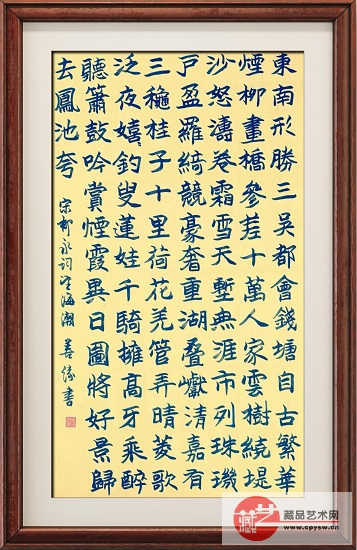 東南形勝三吳都會錢塘自古繁華
煙柳畫橋參差十萬人家雲樹繞堤
沙怒濤卷霜雪天塹無涯市列珠璣
戶盈羅綺競豪奢重湖叠巘清嘉有
三穐桂子十里荷花羌管弄晴菱歌
泛夜嬉釣叟蓮娃千騎擁高牙乘醉
聽簫鼓吟賞煙霞異日圖將好景歸
去鳳池夸
宋柳永词望海潮 善書
藏艺
藏品艺术网
www.cpysw.cn